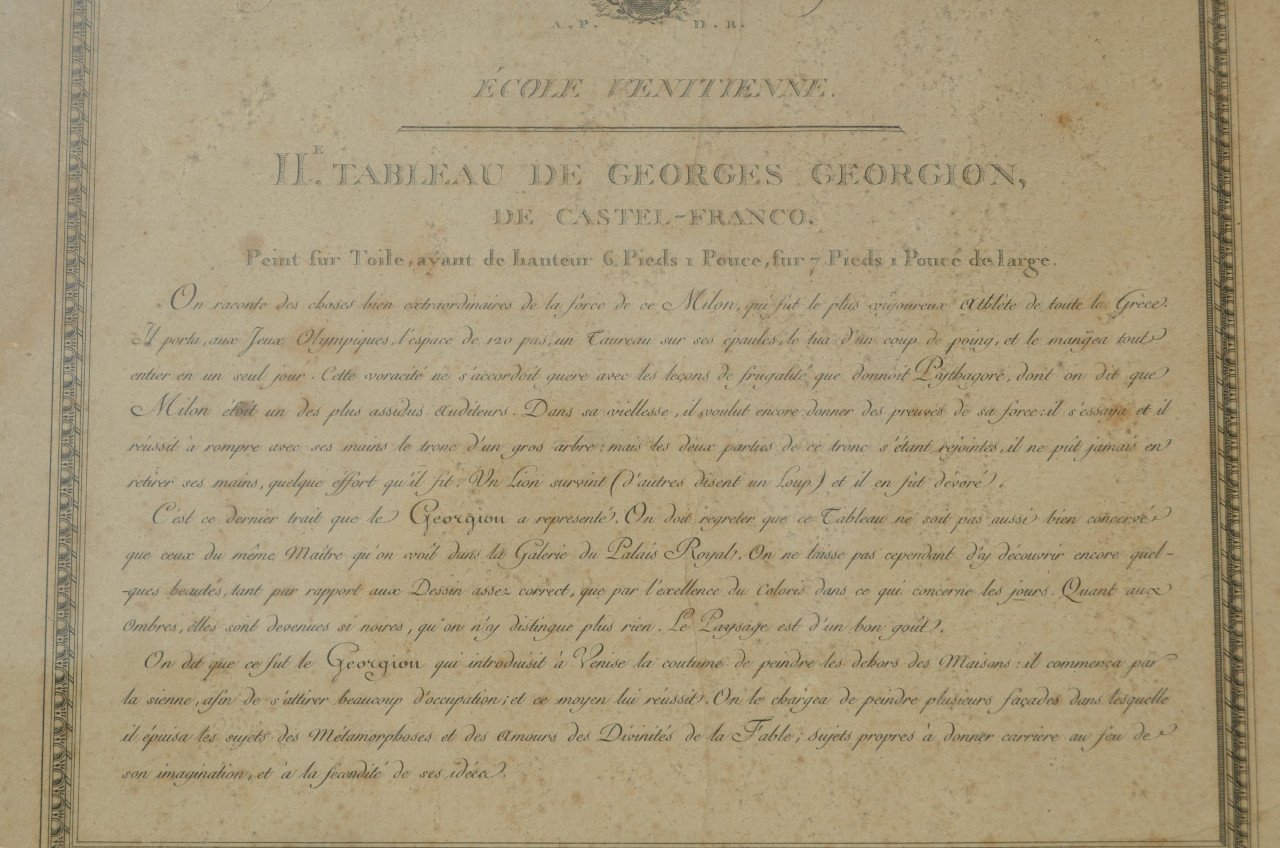 A.P. D.R.
ÉCOLE VENITIENNE.
II.E TABLEAU DE GEORGES GEORGION,
DE CASTEL-FRANCO.
Peint sur Toile, ayant de hauteur 6 Pieds 1 Pouce, sur 7 Pieds 1 Pouce de large.
On raconte des choses bien extraordinaires de la force de ce Milon, qui fut le plus vigoureux Athlète de toute la Grèce.
Il porta, aux Jeux Olympiques, l'espace de 120 pas, un Taureau sur ses épaules, le tua d'un coup de poing, et le mangea tout
entier en un seul jour. Cette voracité ne s'accordoit guere avec les leçons de frugalité que donnoit Pythagore, dont on dit que
Milon étoit un des plus assidus Auditeurs. Dans sa viellesse, il voulut encore donner des preuves de sa force: il s'essaya et il
réussit à rompre avec ses mains le tronc d'un gros arbre; mais les deux parties de ce tronc s'étant réjointes, il ne pût jamais en
retirer ses mains, quelque effort qu'il fit. Un Lion survint (d'autres disent un Loup) et il en fut dévoré.
C'est ce dernier trait que le Georgion a representé. On doit regreter que ce Tableau ne soit pas aussi bien concervé
que ceux du même Maitre qu'on voit dans la Galerie du Palais Royal. On ne laisse pas cependant d'y découvrir encore quel-
-ques beautés, tant par rapport aux Dessin assez correct, que par l'exellence du Coloris dans ce qui concerne les jours. Quant aux
Ombres, elles sont devenues si noires, qu'on n'y distingue plus rien. Le Paysage est d'un bon goût.
On dit que ce fut le Georgion qui introduisit à Vénise la coutume de peindre les dehors des Maisons: il commença par
la sienne, afin de s'attirer beaucoup d'occupation; et ce moyen lui réussit. On le chargea de peindre plusieurs façades dans lesquelle
il épuisa les sujets des Métamorphoses et des Amours des Divinités de la Fable; sujets propres à donner carriere au feu de
son imagination, et à la fécondité de ses idées.